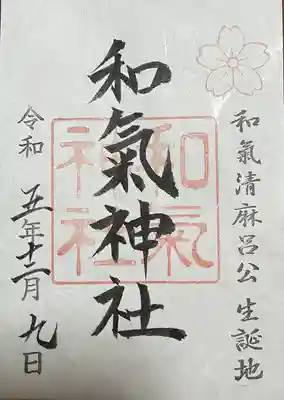 和氣清麻呂公生誕地
和氣神社
和氣神社
令和五年十一月九日